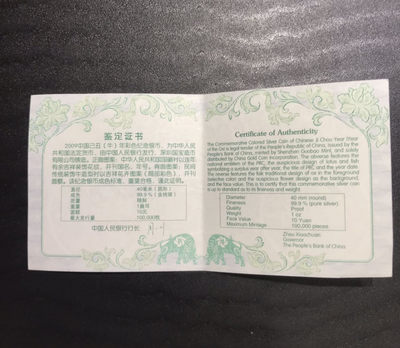 鉴定证书
2009中国己丑(牛)年彩色纪念银币,为中华人民
共和国法定货币,由中国人民银行发行,深圳国宝造币
有限公司铸造,
中国金币总公司
传统装饰牛造型
直径 40毫米(圆形)
成色 99.9%
质量 精制
重量 1盎司
面额 10元
最大发行量 100,000枚
中国人民银行行长
Certificate of Authenticity
The Commemorative Colored Silver Coin of Chinese Ji Chou Year (Year
the Ox) is legal tender of the People's Republic of China, issued by the
People's Bank of China, minted by Shenzhen Guobao Mint, and solely
distributed by China Gold Coin Incorporation. The obverse features the
national emblem of the PRC, the auspicious design of lotus and fish
symbolizing a surplus year after year, the title of PRC and the year date.
The reverse features the folk traditional design of ox in the foreground
(selective color) and the auspicious flower design in the background,
and the face value. This is to certify that this commemorative silver coin
is up to standard as to its fineness and weight.
Diameter 40 mm (round)
Fineness 99.9 % (pure silver)
Quality Proof
Weight 1 oz
Face Value 10 Yuan
Maximum Mintage 100,000 pieces
Zhou Xiaochuan
Governor
The People's Bank of China